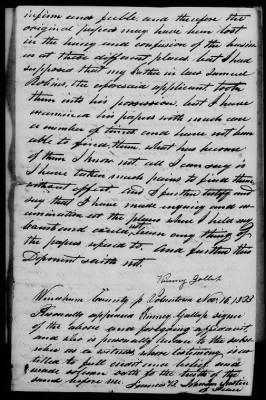 infirm and feeble and therefore the
original papers may have been lost
in the hurry and confusion of the business
as at those different places but I had
supposed that my Father in law Samuel
Robins, the aforesaid applicant took
them into his possession, but I have
examined his papers with much care
a number of times and have not been
able to find them what has become
of them I know not all I can say is
I have taken much pains to find them
without effect. And I further testify and
say that I have made enquiry and ex
amination at the places where I held my
and could learn any thing of
the papers aforesaid to. And further this
Deponent saith not.
Gallup
Windham County ss Voluntown Nov. 16, 1833
Personally appeared Gallup signer
of the above and foregoing affidavit,
and who is personally known to the subscr
iber as a witness whose testimony is en
titled to full credit and belief and
made solemn oath to the truth of the
same before me. Johnson Justice
of Peace